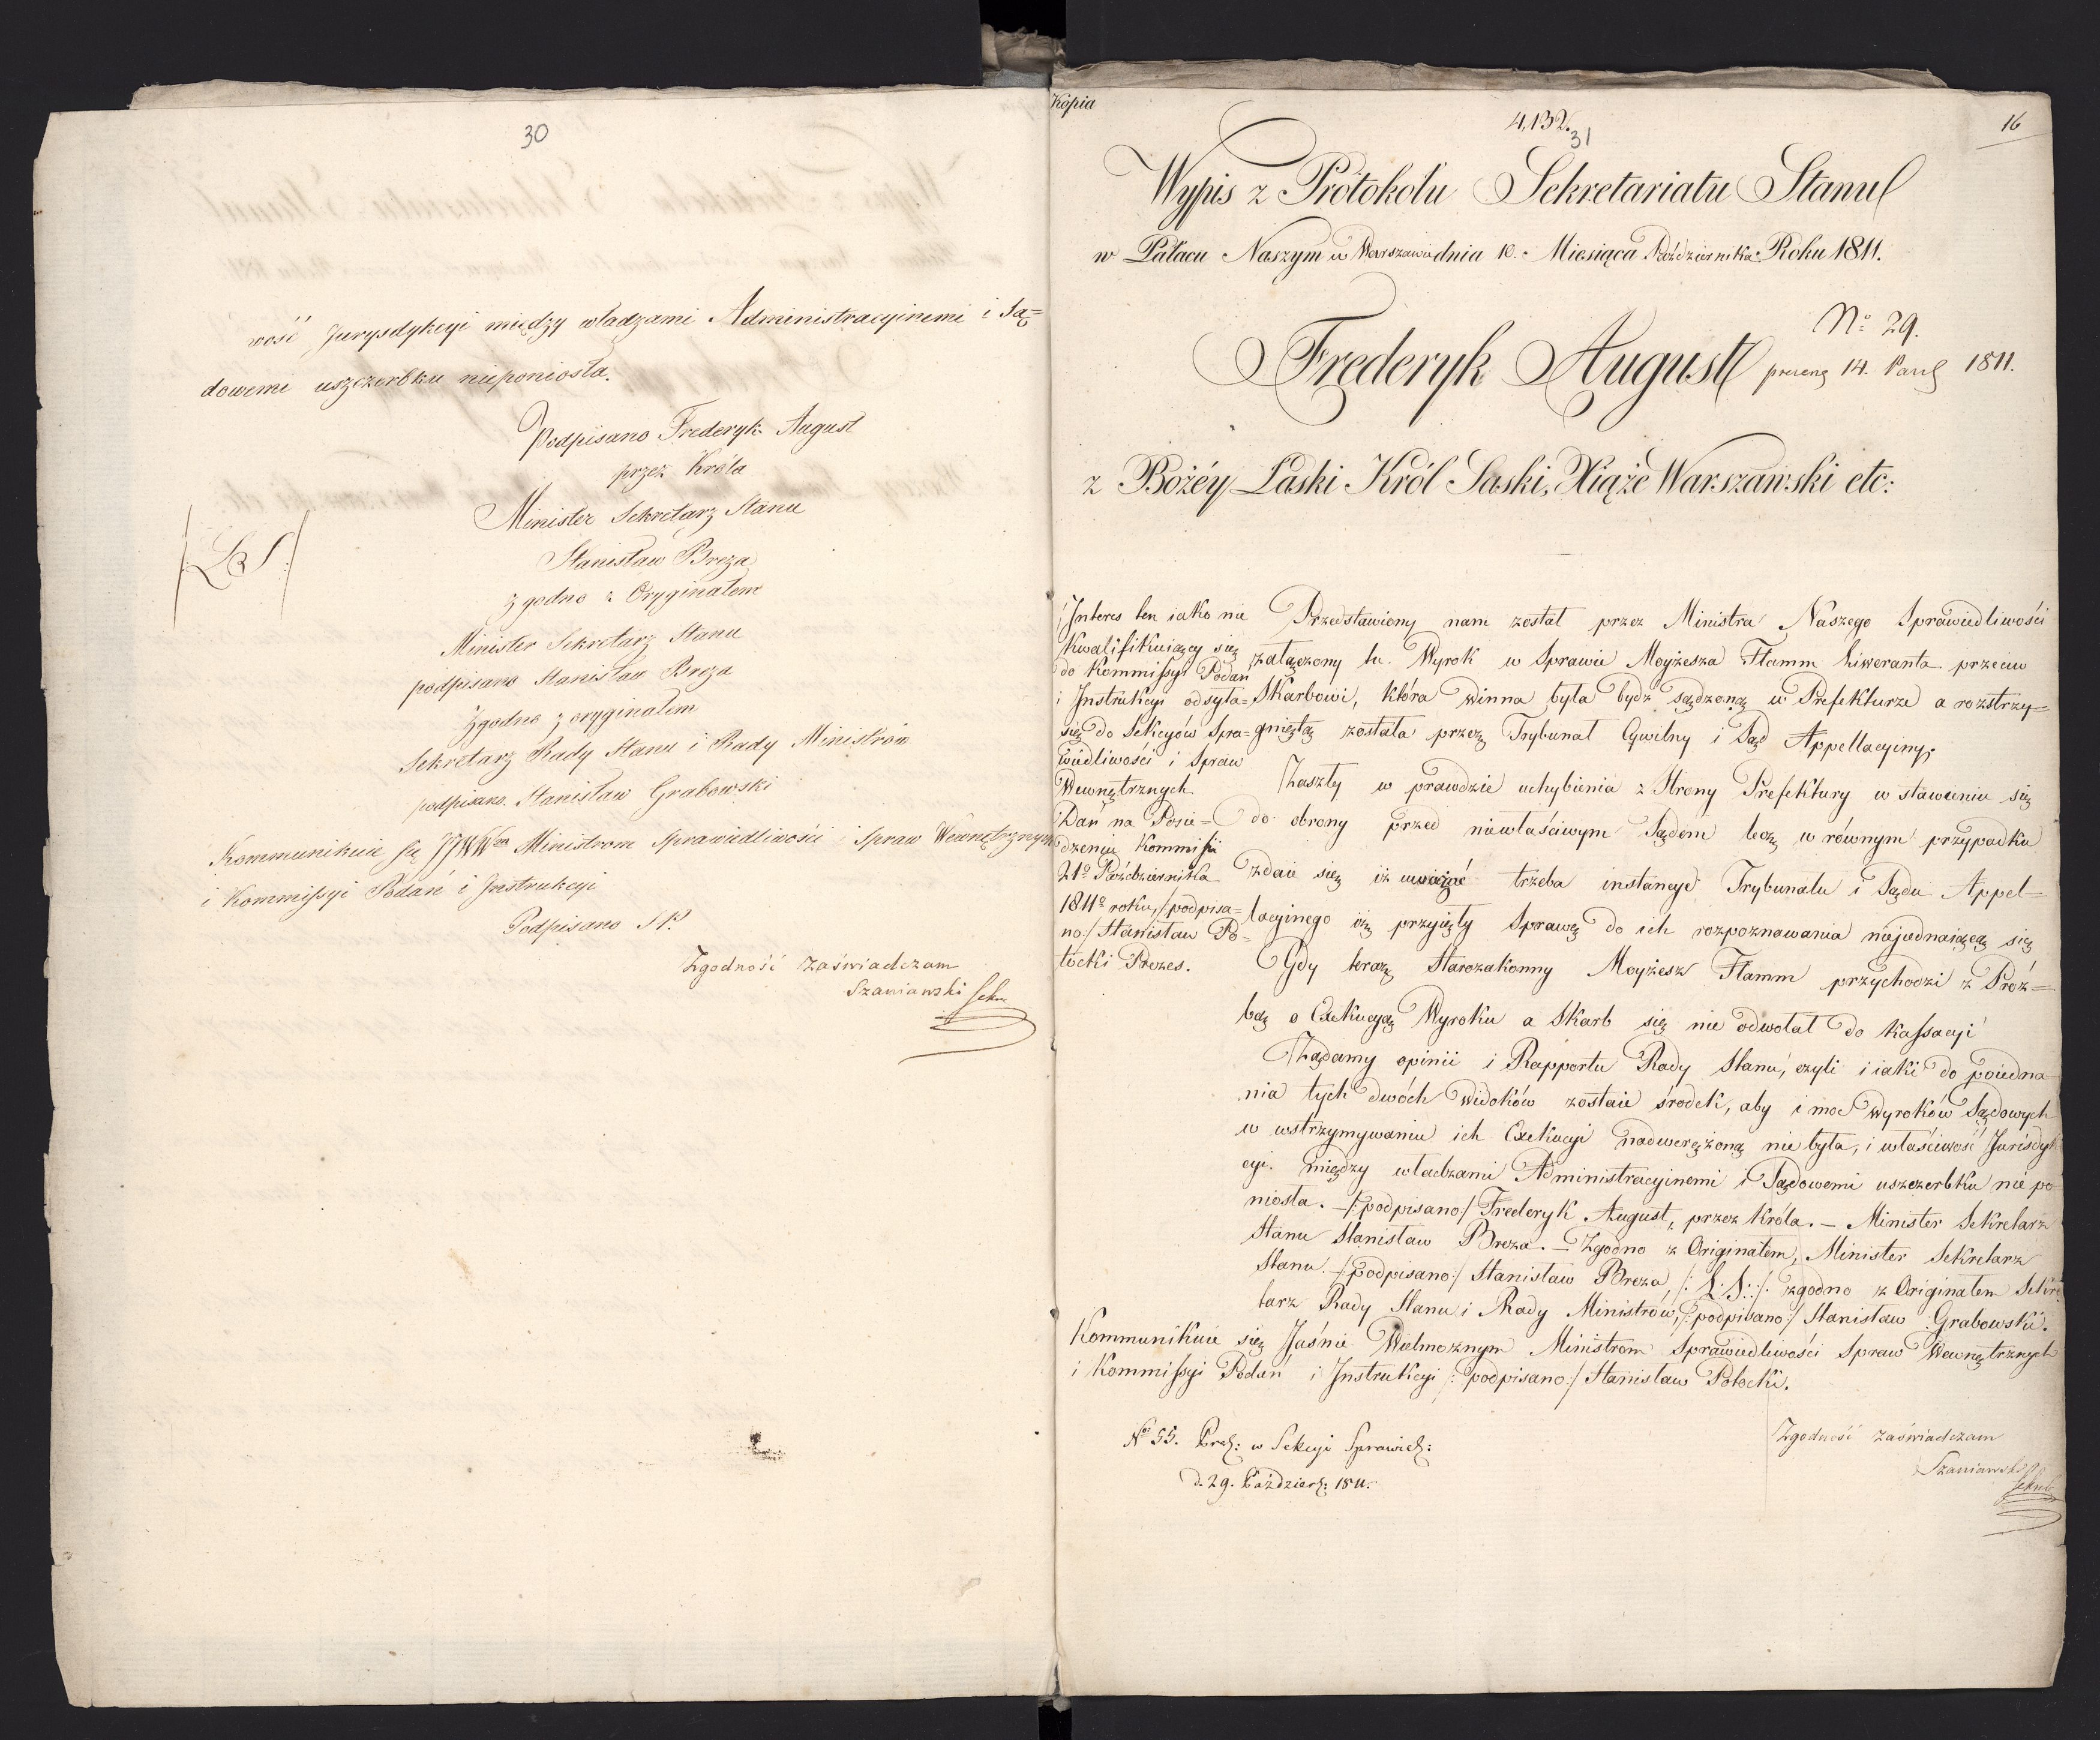 30
wość Jurysdykcyi między władzami Administracyinemi i Są=
dowemi uszczerbku nieponiosła.
Podpisano Frederyk August
przez Króla
Minister Sekretarz Stanu
Stanisław Breza
zgodno z Oryginałem
Minister Sekretarz Stanu
podpisano Stanisław Breza
Zgodno z oryginałem
Sekretarz Rady Stanu i Rady Ministrów
podpisano Stanisław Grabowski
L S
Kommunikuie się JJWWm Ministrom Sprawiedliwości i Spraw Wewnętrznych
i Kommissyi Podań i Instrukcyi
Podpisano S P.
Zgodność zaświadczam
Szaniawski Sekr
Kopia
4,132.
31
16
Wypis z Protokołu Sekretariatu Stanu
w Pałacu Naszym w Warszawie dnia 10. Miesiąca Października Roku 1811.
No 29.
Frederyk August
14. 1811.
z Bożéy Łaski Król Saski, Xiąże Warszawski etc:
Interes ten iako nie
kwalifikuiący się
do Kommissyi Podań
i Instrukcyi odsyła=
się do Sekcyów Spra=
wiedliwości i Spraw
Wewnętrznych
Dań na Posie=
dzeniu Kommissii
21o Października
1811o roku, /:podpisa=
no:/ Stanisław Po=
tocki Prezes.
Przedstawiony nam został przez Ministra Naszego Sprawiedliwości
załączony tu Wyrok w Sprawie Moyżesza Flamm liweranta przeciw
Skarbowi, która winna była bydz sądzoną w Prefekturze a rozstrzy=
gniętą została przez Trybunał Cywilny i Sąd Appellacyiny.
Zaszły w prawdzie uchybienia z Strony Prefektury w stawieniu się
do obrony przed niewłaściwym Sądem lecz w równym przypadku
zdaie się iż uważać trzeba instancye Trybunału i Sądu Appel=
lacyinego iż przyięły Sprawę do ich rozpoznawania niejednaiącą się
Gdy teraz Starozakonny Moyżesz Flamm przychodzi z Próź=
bą o Exekucyą Wyroku a Skarb się nie odwołał do Kassacyi
Żądamy opinii i Rapportu Rady Stanu, czyli i iaki do poiedna
nia tych dwóch widoków zostaie środek, aby i moc Wyroków Sądowych
w wstrzymywaniu ich Exekucyi nadwerężoną nie była, i właściwość Jurisdyk
cyi między władzami Administracyinemi i Sądowemi uszczerbku nie po
niosła. — /:podpisano:/ Frederyk August, przez Króla. — Minister Sekretarz
Stanu Stanisław Breza. — Zgodno z Originałem, Minister Sekretarz
Stanu. — /:podpisano:/ Stanisław Breza /: L. S. :/ zgodno z Originałem Sekre
tarz Rady Stanu i Rady Ministrów, /:podpisano:/ Stanisław Grabowski.
Kommunikuie się Jaśnie Wielmożnym Ministrom Sprawiedliwości Spraw Wewnętrznych
i Kommissyi Podań i Instrukcyi /:podpisano:/ Stanisław Potocki.
No 55. w Sekcyi Sprawied:
d. 29. Paździer: 1811.
Zgodność zaświadczam
Szaniawski
Sekr